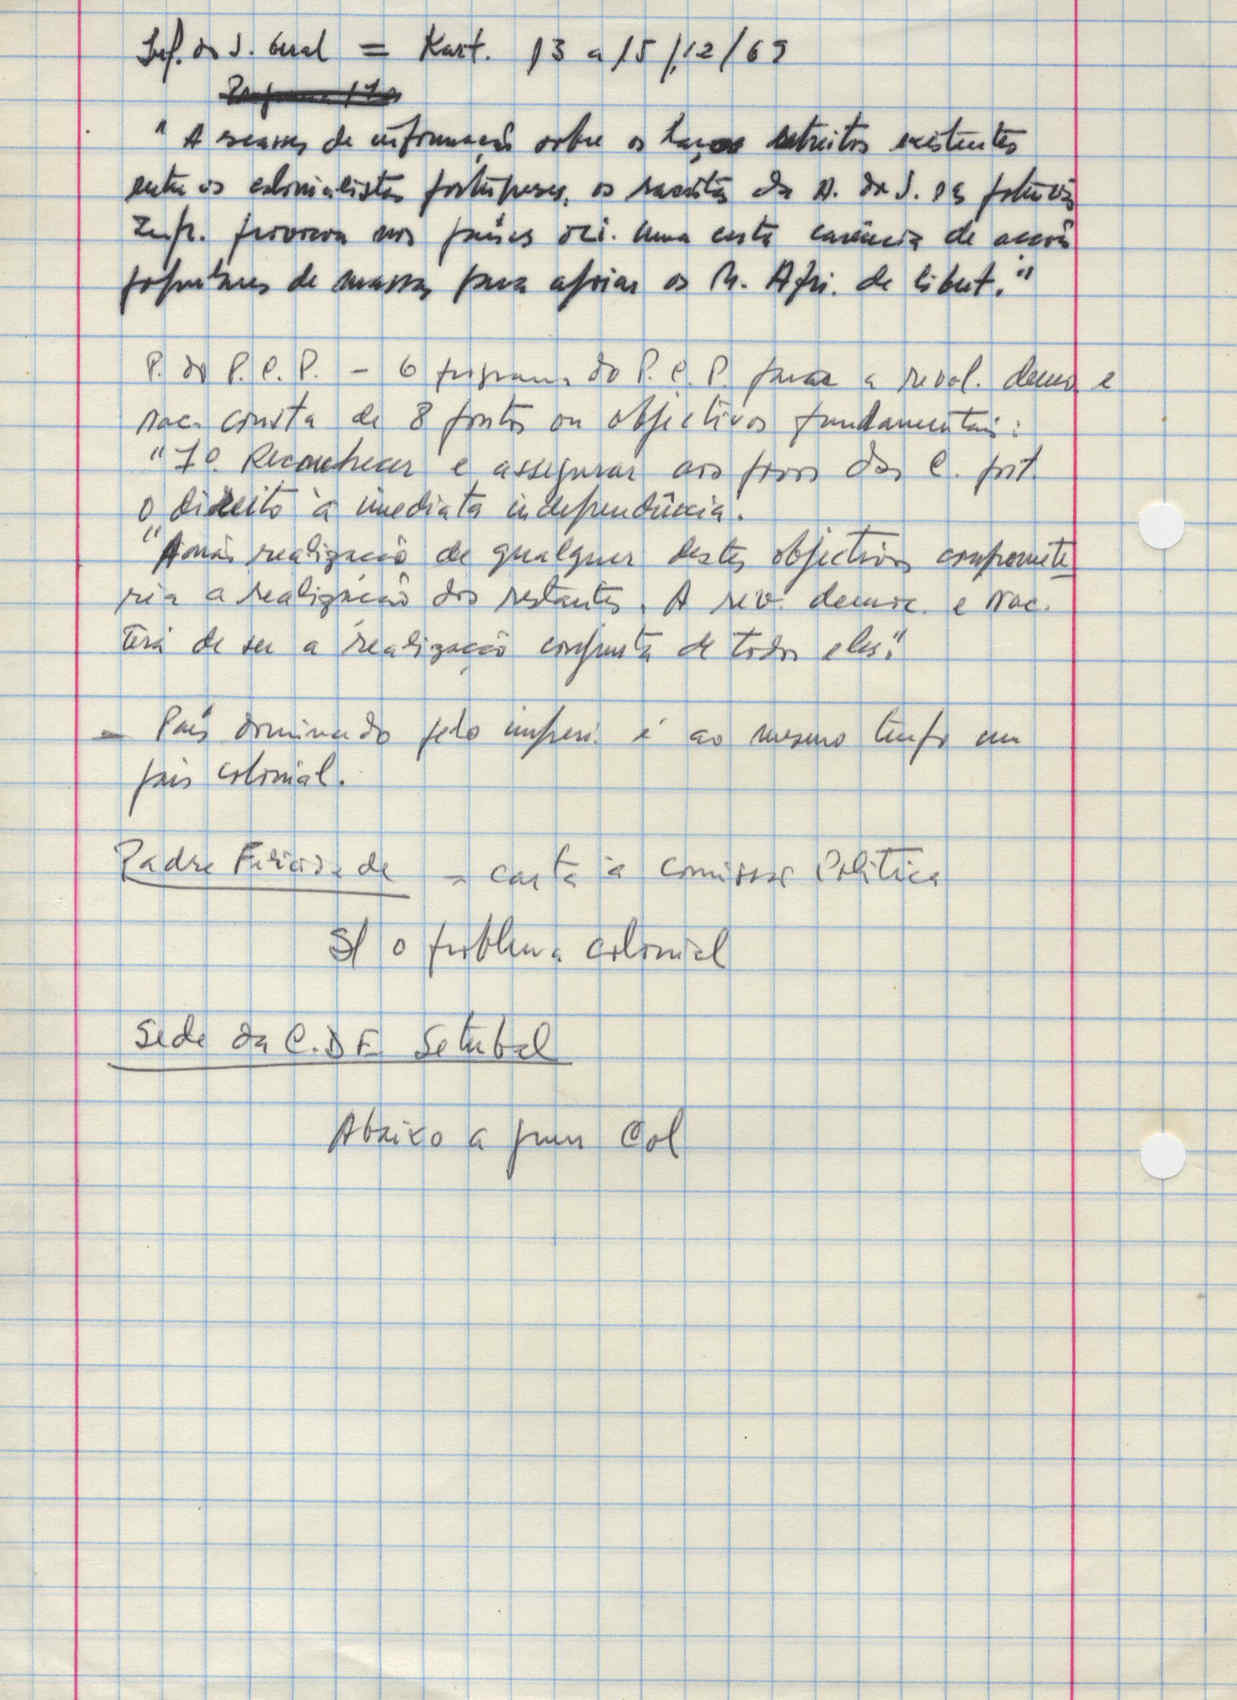 Inf. do S. Geral = Kart. 13 a 15/12/69
"A escasses de informação sobre os laços estreitos existentes
entre os colonialistas portugueses, os racistas da A. do S. e as potências
Imp. provoca nos países oci. uma certa carência de acções
populares de massas para apoiar os M. Afri. de libert."
P. do P.C.P. - O programa do P.C.P. para a revol. democ. e
nac. consta de 8 pontos ou objectivos fundamentais:
"7º. Reconhecer e assegurar aos povos das C. port.
o direito à imediata independência.
"A não realização de qualquer destes objectivos compromete
ria a realização dos restantes. A rev. democ. e nac.
terá de ser a realização conjunta de todos eles."
- País dominado pelo imperi. é ao mesmo tempo um
país colonial.
Padre Felicidade = carta à comissão Política
S/ o problema colonial
Sede da C.D.E. Setubal
Abaixo a guerr Col